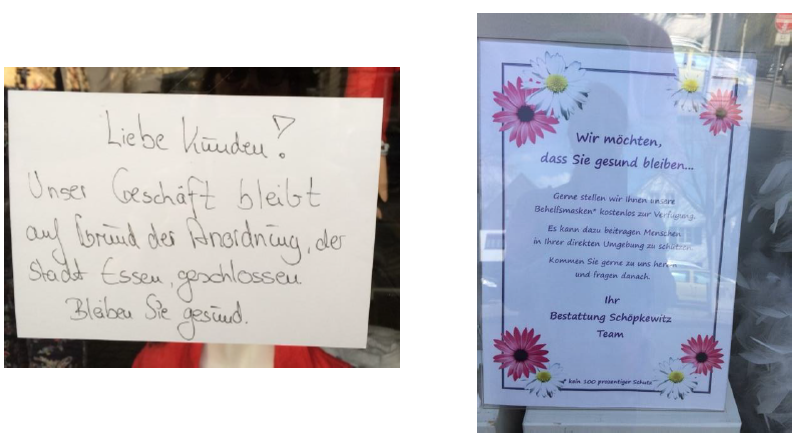 Liebe Kunden!
Unser Geschäft bleibt
auf Grund der Anordnung, der
Stadt Essen, geschlossen
Bleiben Sie gesund.
Wir möchten,
dass Sie gesund bleiben...
Gerne stellen wir Ihnen unsere
Behelfsmasken* kostenlos zur Verfügung.
Es kann dazu beitragen Menschen
in Ihrer direkten Umgebung zu schützen.
Kommen Sie gerne zu uns herein
und fragen danach.
Ihr
Bestattung Schöpkewitz
Team
* kein 100 prozentiger Schutz